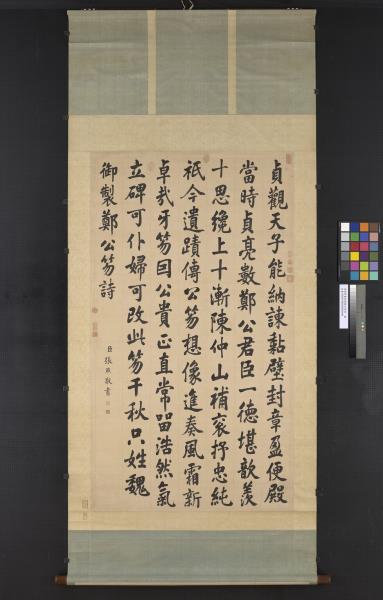 貞觀天子能納諫黏壁封章盈便殿
當時貞亮數鄭公君臣一德堪歆羨
十思纔上十漸陳仲山補袞抒忠純
祇今遺蹟傳公笏想像進奏風霜新
卓哉牙笏因公貴正直常留浩然氣
立碑可仆婦可改此笏千秋只姓魏
御製鄭公笏詩
臣張照敬書